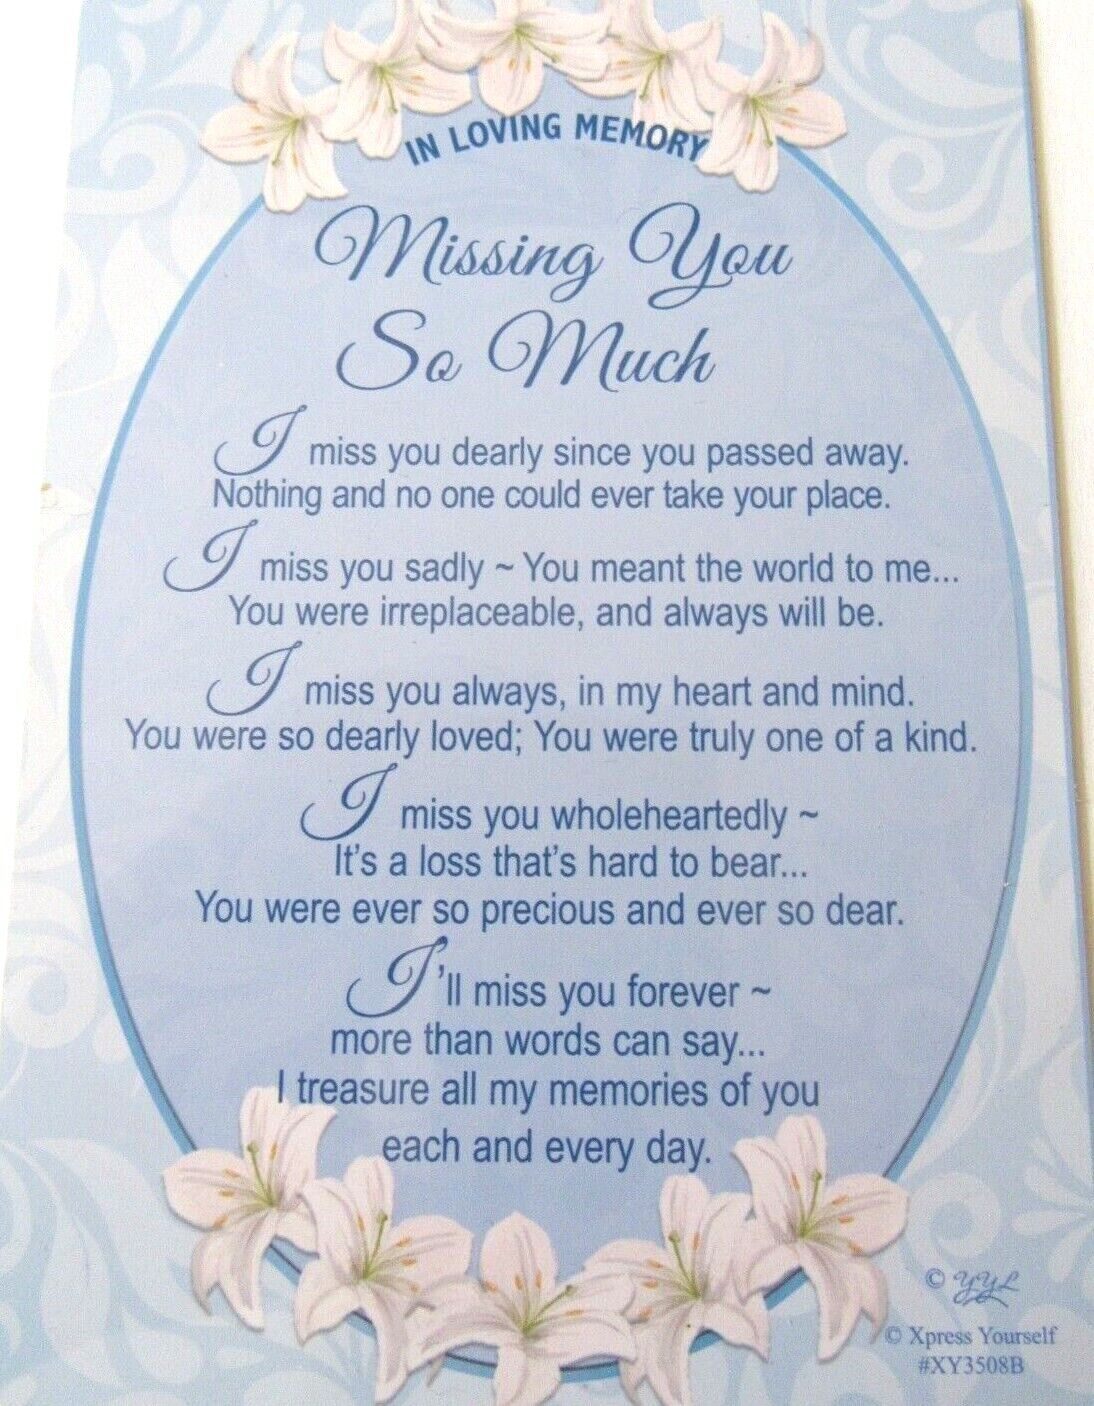 IN LOVING MEMORY
Missing You
So Much
I miss you dearly since you passed away.
Nothing and no one could ever take your place.
I miss you sadly ~ You meant the world to me...
You were irreplaceable, and always will be.
I miss you always, in my heart and mind.
You were so dearly loved; You were truly one of a kind.
I miss you wholeheartedly ~
It's a loss that's hard to bear...
You were ever so precious and ever so dear.
I'll miss you forever ~
more than words can say...
I treasure all my memories of you
each and every day.
© YYL
© Xpress Yourself
#XY3508B